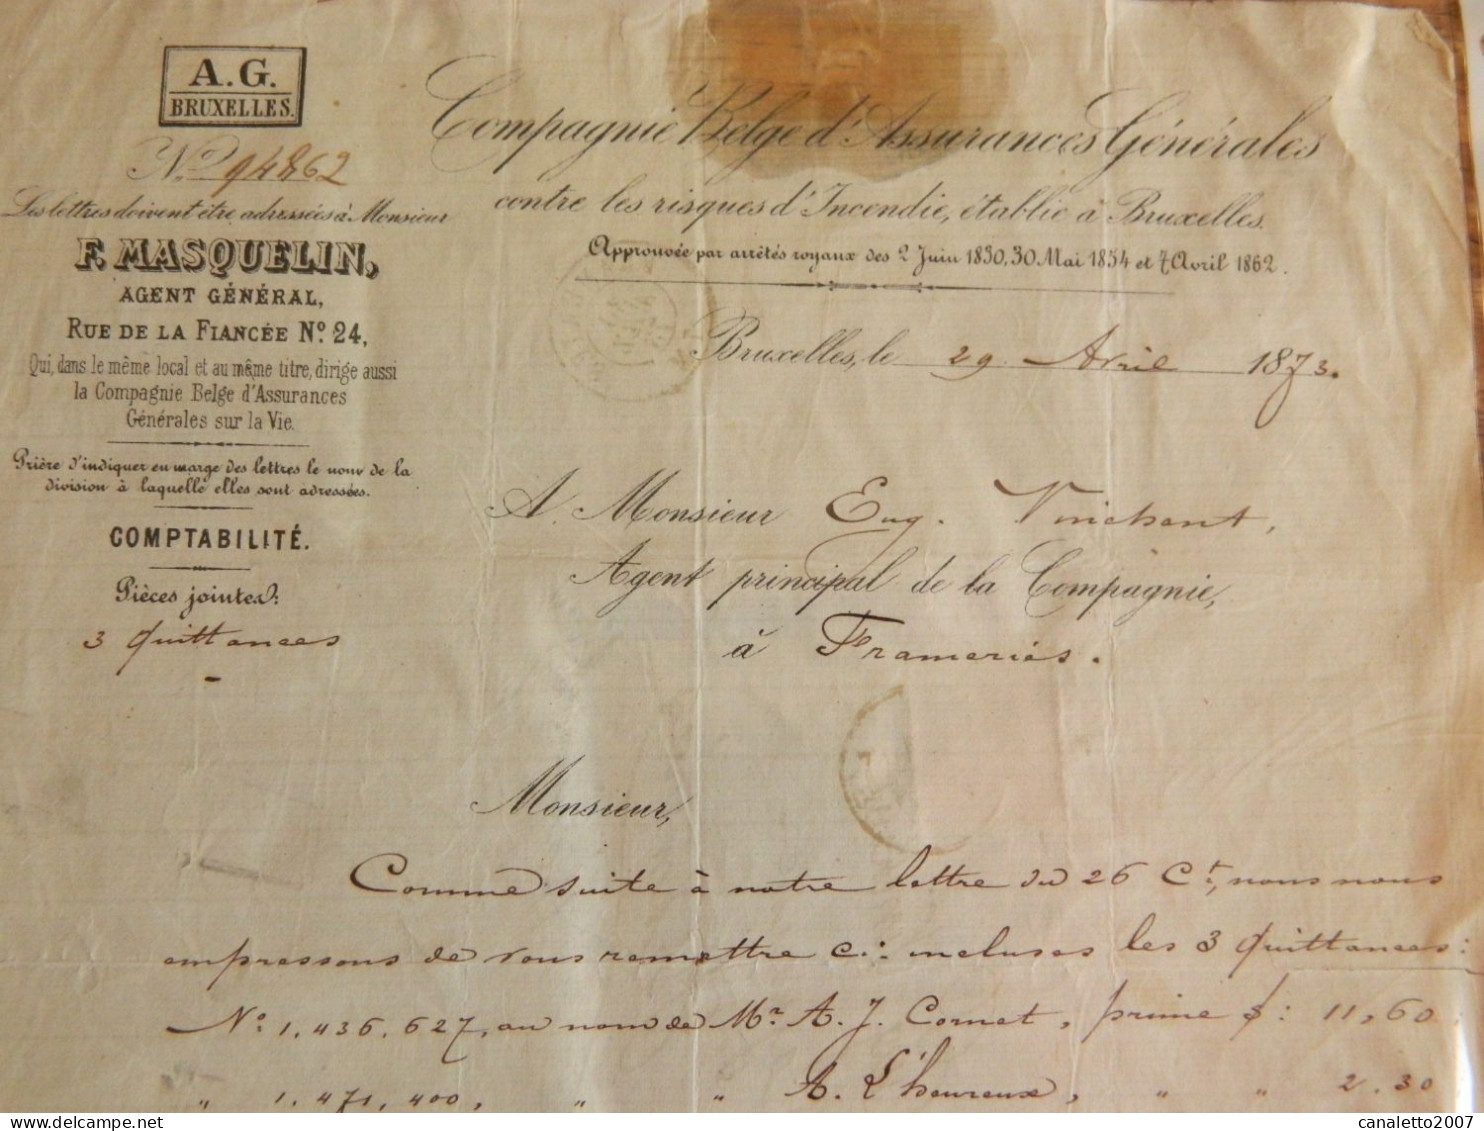 A.G.
BRUXELLES.
N.º 94862
Les lettres doivent être adressées à Monsieur
F. MASQUELIN,
AGENT GÉNÉRAL,
RUE DE LA FIANCÉE Nº 24,
Qui, dans le même local et au même titre, dirige aussi
la Compagnie Belge d'Assurances
Générales sur la Vie.
Prière d'indiquer en marge des lettres le nom de la
division à laquelle elles sont adressées.
COMPTABILITÉ.
Pièces jointes:
3 quittances
Compagnie Belge d'Assurances Générales
contre les risques d'Incendie, établie à Bruxelles.
Approuvée par arrêtés royaux des 2 Juin 1830, 30 Mai 1834 et 7 Avril 1862.
Bruxelles, le 29 Avril 1873.
A Monsieur Eug. Vinchent,
Agent principal de la Compagnie,
à Frameries.
Monsieur,
Comme suite à notre lettre du 26 Ct, nous nous
empressons de vous remettre ci: incluses les 3 quittances:
Nº 1,436,627, au nom de Mr A. J. Cornet, prime f: 11,60
" 1,471,400, " " A. L'heureux, " " 2.30
canaletto2007